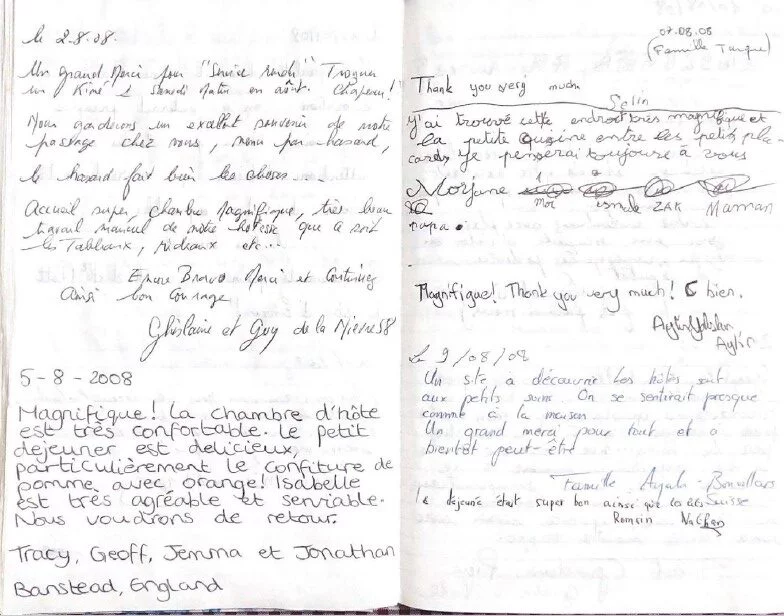 le 2.8.08.
Un grand Merci pour "Service rendu" Trouver
un Kiné 1 Samedi Matin en août. Chapeau!
Nous garderons un excellent souvenir de notre
passage chez vous, venu par hasard,
le hasard fait bien les choses
Accueil super, chambre Magnifique, très beau
travail manuel de notre hotesse que ce soit
les Tableaux, rideaux etc...
Encore Bravo Merci et Continuez
Ainsi bon courage
Ghislaine et Guy de la Nièvre 58
5-8-2008
Magnifique! La chambre d'hôte
est très confortable. Le petit
dejeuner est delicieux,
particulièrement le confiture de
pomme avec orange! Isabelle
est très agréable et serviable.
Nous voudrons de retour.
Tracy, Geoff, Jemma et Jonathan
Banstead, England
07.08.08
(Famille Turque)
Thank you very much
Selin
j'ai trouvé cette endroit très magnifique et
la petite cuisine entre les petits pla-
cards je penserai toujours à vous
Morjane
moi ZAK Maman
papa
Magnifique! Thank you very much! C bien.
Aylin
Le 9/08/08
Un site à découvrir. Les hôtes sont
aux petits soins. On se sentirait presque
comme à la maison.
Un grand merci pour tout et à
bientôt peut-être
Famille
Suisse
le dejeuné était super bon ainsi que les lits
Romain Nathan